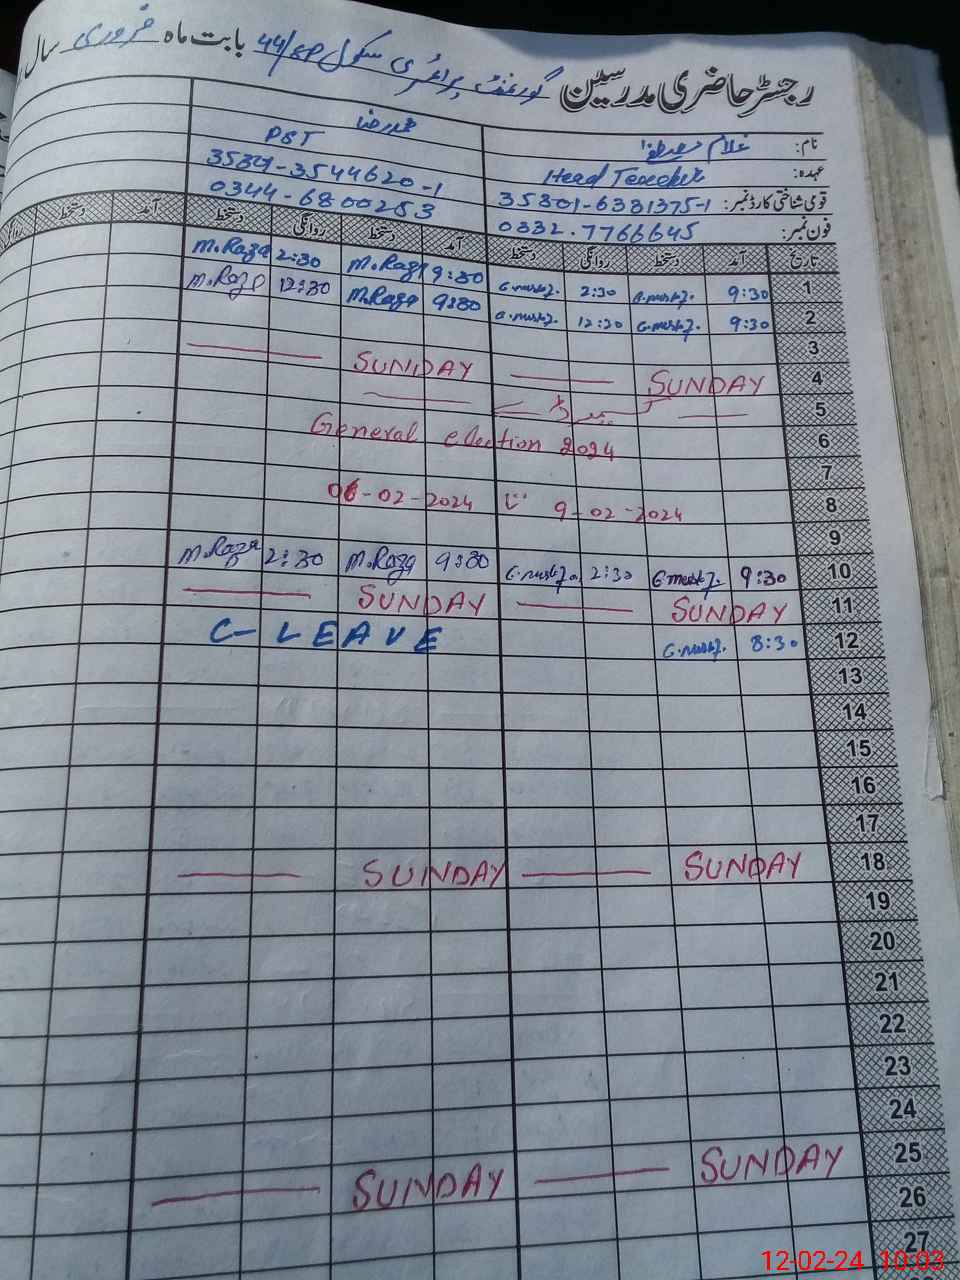 رجسٹر حاضری مدرسین گورنمنٹ پرائمری سکول 44/SP بابت ماہ فروری سال
نام: غلام مصطفیٰ محمد رضا
عہدہ: Head Teacher PST
قومی شناختی کارڈ نمبر: 35301-6381375-1
فون نمبر: 0332.7766645 0344-6800253
تاریخ آمد دستخط روانگی دستخط آمد دستخط روانگی دستخط آمد دستخط
1 9:30 G.must. 2:30 G.must. 9:30 M.Raza 2:30 M.Raza
2 9:30 G.must. 12:30 G.must. 9:30 M.Raza 12:30 M.Raza
3
4 SUNDAY SUNDAY
5
6 General election 2024
7
8 06-02-2024 تا 9-02-2024
9
10 9:30 G.must. 2:30 G.must. 9:30 M.Raza 2:30 M.Raza
11 SUNDAY SUNDAY
12 8:30 G.must. C-LEAVE
13
14
15
16
17
18 SUNDAY SUNDAY
19
20
21
22
23
24
25 SUNDAY SUNDAY
26
27
12-02-24 10:03